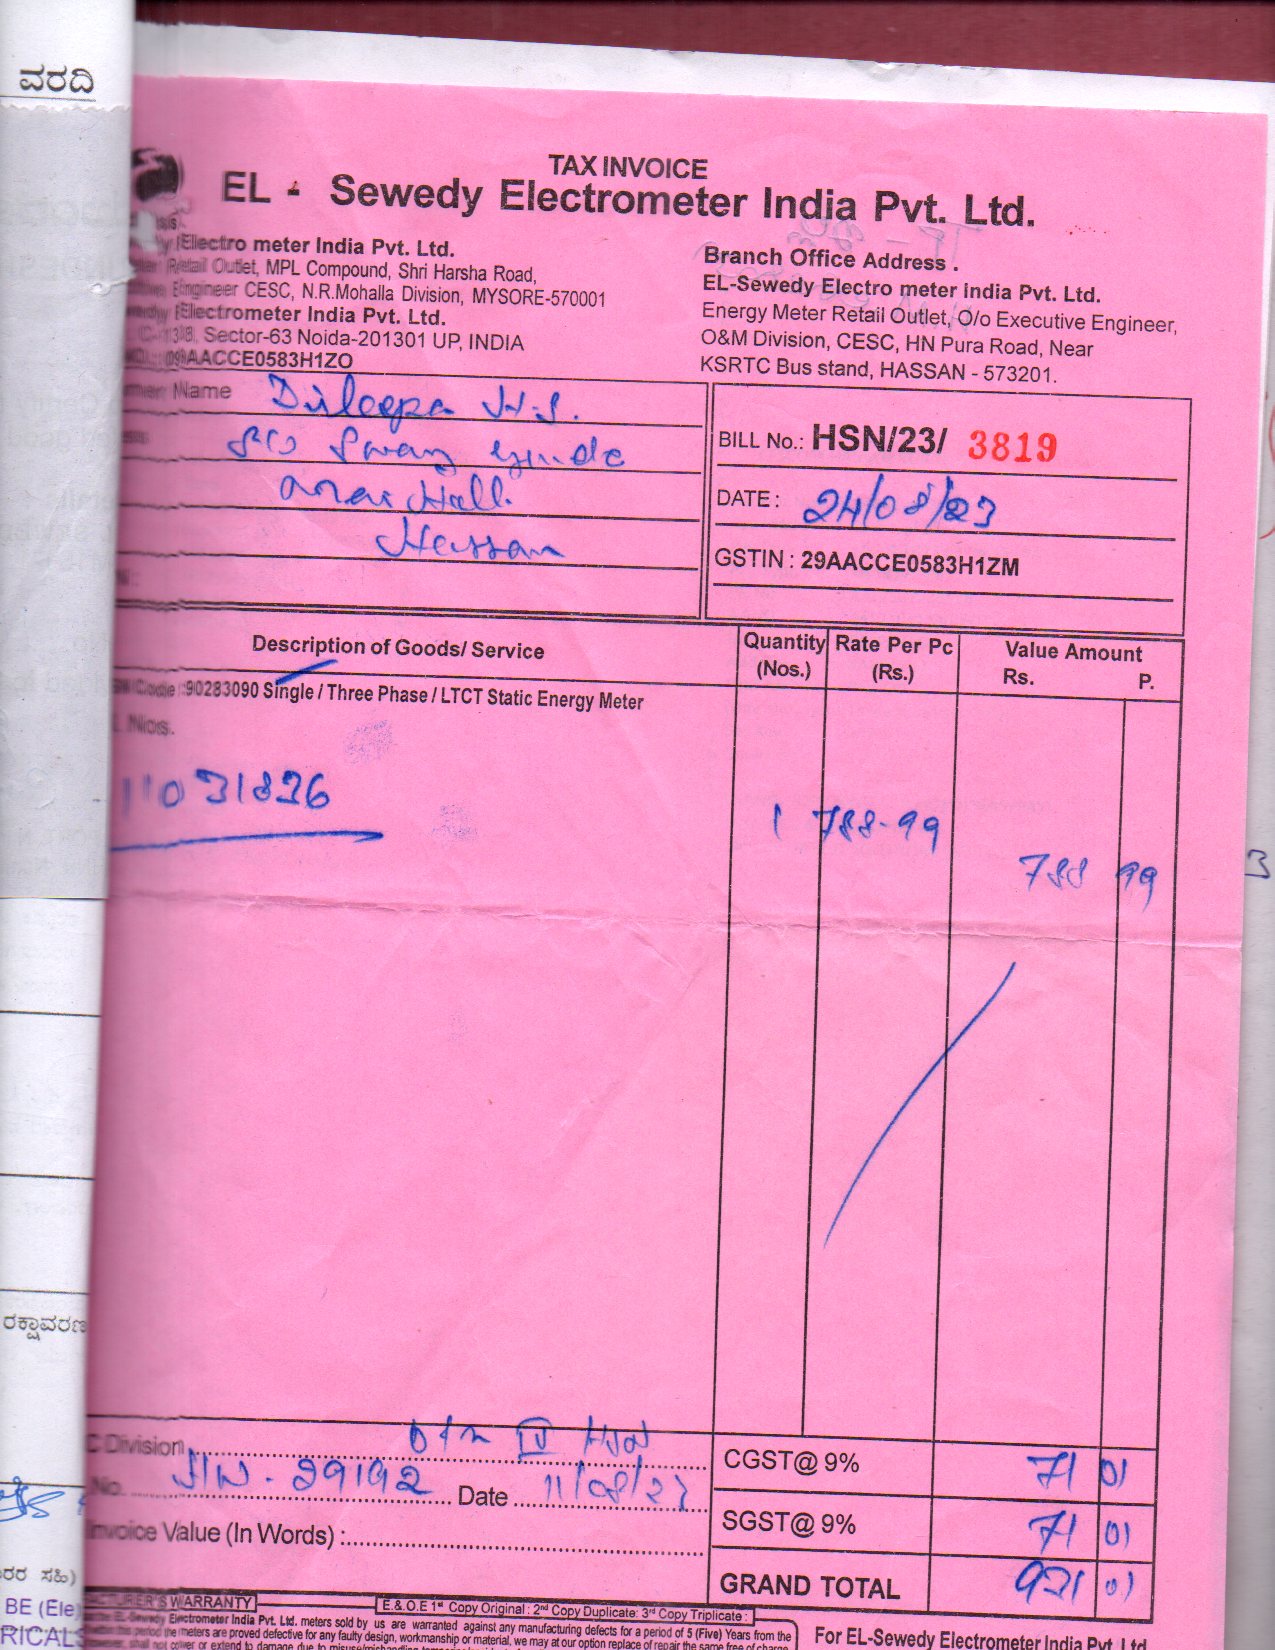 ವರದಿ
TAX INVOICE
EL - Sewedy Electrometer India Pvt. Ltd.
Electro meter India Pvt. Ltd.
Retail Outlet, MPL Compound, Shri Harsha Road,
Engineer CESC, N.R.Mohalla Division, MYSORE-570001
Electrometer India Pvt. Ltd.
Sector-63 Noida-201301 UP, INDIA
09AACCE0583H1ZO
Branch Office Address .
EL-Sewedy Electro meter India Pvt. Ltd.
Energy Meter Retail Outlet, O/o Executive Engineer,
O&M Division, CESC, HN Pura Road, Near
KSRTC Bus stand, HASSAN - 573201.
Name Dileepa H.S.
S/O
Hassan
BILL No.: HSN/23/ 3819
DATE : 24/08/23
GSTIN : 29AACCE0583H1ZM
Description of Goods/ Service
Quantity (Nos.)
Rate Per Pc (Rs.)
Value Amount
Rs. P.
Code :90283090 Single / Three Phase / LTCT Static Energy Meter
Nos.
11031836
1 788-99
788 99
Division
Date 11/08/23
Invoice Value (In Words) :
CGST@ 9% 71 01
SGST@ 9% 71 01
GRAND TOTAL 931 01
WARRANTY
E.& O.E 1st Copy Original : 2nd Copy Duplicate: 3rd Copy Triplicate :
Electrometer India Pvt. Ltd. meters sold by us are warranted against any manufacturing defects for a period of 5 (Five) Years from the
the meters are proved defective for any faulty design, workmanship or material, we may at our option replace of repair the same free of charge
For EL-Sewedy Electrometer India Pvt. Ltd
ರಕ್ಷಾವರಣ
ಸಹಿ)
BE (Ele)
RICALS